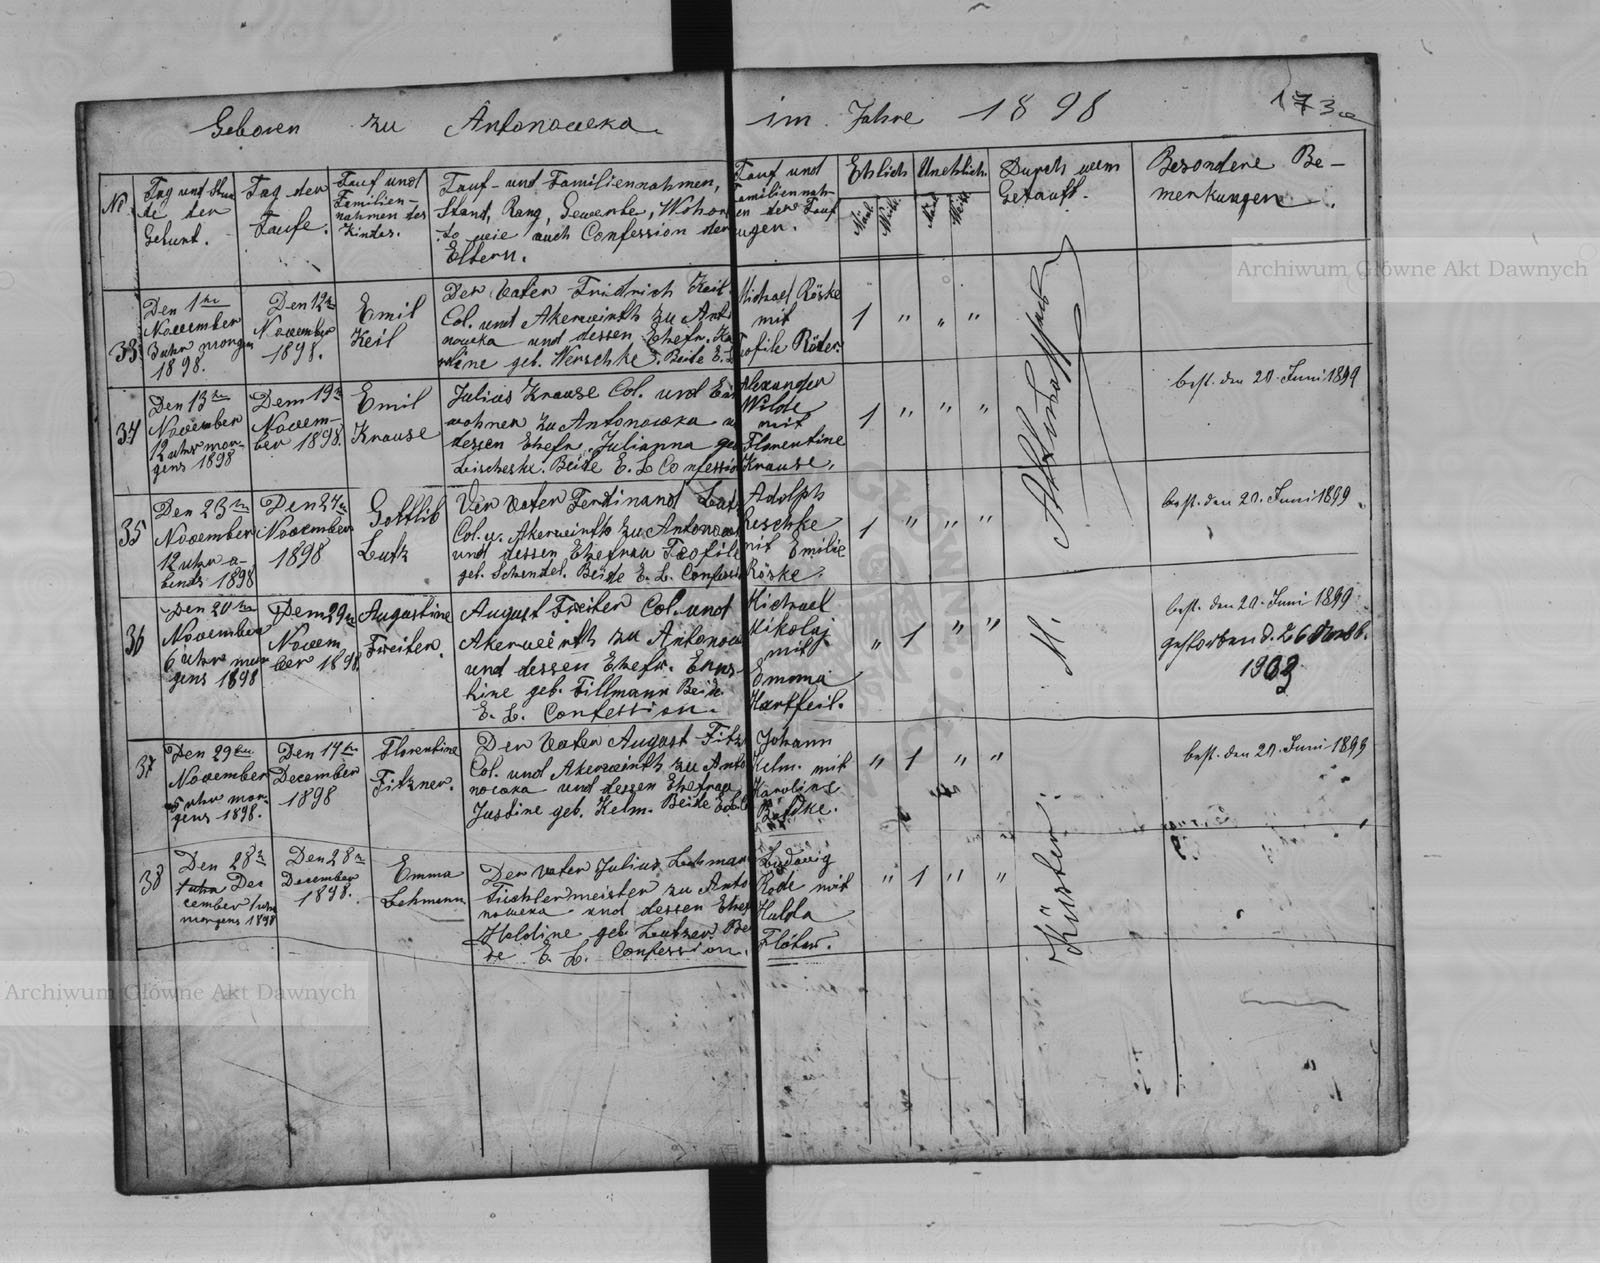 Geboren zu Antonowka im Jahre 1898
173
No.
Tag und Stun
de der
Geburt.
Tag der
Taufe.
Tauf und
Familien-
nahmen des
Kindes.
Tauf- und Familiennahmen,
Stand, Rang, Gewerbe, Wohort
so wie auch Confession der
Eltern.
Tauf und
Familiennah-
en der Tauf
ugen.
Ehlich Unehlich.
Mänl. Weibl. Mänl. Weibl.
Durch wem
Getauft.
Besondere Be-
merkungen.
33.
Den 1ten
November
3 uhr morgen
1898.
Den 12ten
November
1898.
Emil
Keil
Der Vater Fridrich Keil
Col. und Akerwirth zu Anto
nowka und dessen Ehefr. Ka
roline geb. Werschke. Beide E. L
Michael Röske
mit
Teofile Röder.
1 " " "
34
Den 13ten
November
12 uhr mor-
gens 1898
Dem 19ten
Novem-
ber 1898.
Emil
Krause
Julius Krause Col. und Ein
wohner zu Antonowka u
dessen Ehefr. Julianna geb
Leischeske. Beide E. L Confession
Alexander
Wilde
mit
Florentine
Krause.
1 " " "
best. den 20. Juni 1899
35
Den 23ten
November
12 uhr a-
bends 1898
Den 27ten
November
1898
Gottlib
Lutz
Der Vater Ferdinand Lutz
Col. u. Akerwirth zu Antonow
und dessen Ehefrau Teofile
geb. Schendel. Beide E. L. Confess
Adolph
Reschke
mit Emilie
Röske.
1 " " "
best. den 20. Juni 1899
36
Den 20ten
November
6 uhr mor
gens 1898
Dem 29ten
Novem
ber 1898
Augustine
Freiter.
August Freiter Col. und
Akerwirth zu Antonow
und dessen Ehefr. Ernes
tine geb. Tillmann Beide
E. L. Confession.
Michael
Nikolaj
mit
Emma
Hartfeil.
" 1 " "
best. den 20. Juni 1899
gestorben d. 26
1903
37
Den 29ten
November
5 uhr mor-
gens 1898.
Den 17ten
December
1898
Florentine
Fitzner.
Der Vater August Fitz
Col. und Akerwirth zu Anto
nowka und dessen Ehefrau
Justine geb. Kelm. Beide E. L.
Johann
Kelm. mit
Karoline
" 1 " "
best. den 20. Juni 1899
38
Den 28ten
1 uhr Dec
cember 1 uhr
morgens 1898
Den 28ten
December
1898.
Emma
Lehmann
Der Vater Julius Lehmann
Tischlermeister zu Anto
nowka und dessen Ehef
Holdine geb. Leutzer. Bei
de E. L. Confession.
Ludwig
Rode mit
Hulda
Flöter.
" 1 " "
Küster.
Archiwum Główne Akt Dawnych
Archiwum Główne Akt Dawnych